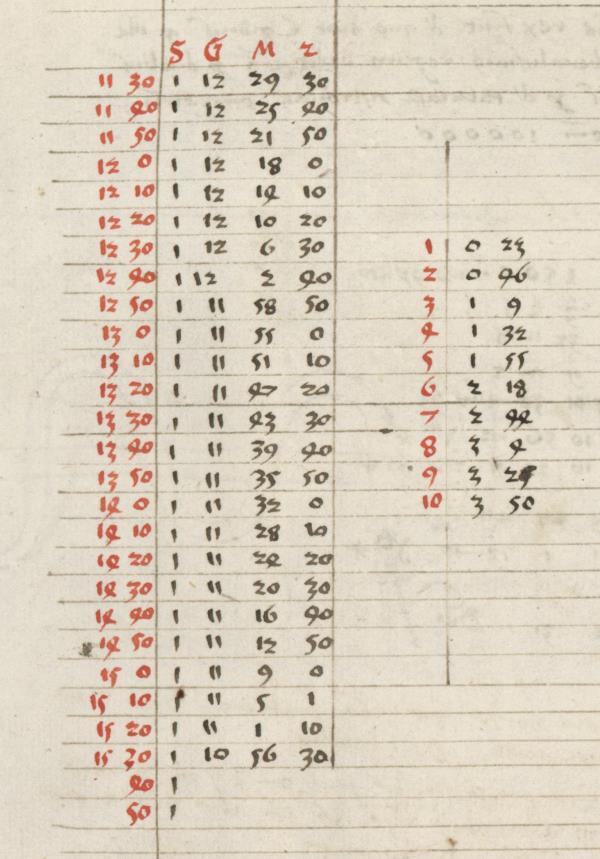 S G M 2
11 30 1 12 29 30
11 40 1 12 25 40
11 50 1 12 21 50
12 0 1 12 18 0
12 10 1 12 14 10
12 20 1 12 10 20
12 30 1 12 6 30
12 40 1 12 2 40
12 50 1 11 58 50
13 0 1 11 55 0
13 10 1 11 51 10
13 20 1 11 47 20
13 30 1 11 43 30
13 40 1 11 39 40
13 50 1 11 35 50
14 0 1 11 32 0
14 10 1 11 28 10
14 20 1 11 24 20
14 30 1 11 20 30
14 40 1 11 16 40
14 50 1 11 12 50
15 0 1 11 9 0
15 10 1 11 5 1
15 20 1 11 1 10
15 30 1 10 56 30
40 1
50 1
1 0 23
2 0 46
3 1 9
4 1 32
5 1 55
6 2 18
7 2 44
8 3 4
9 3
10 3 50